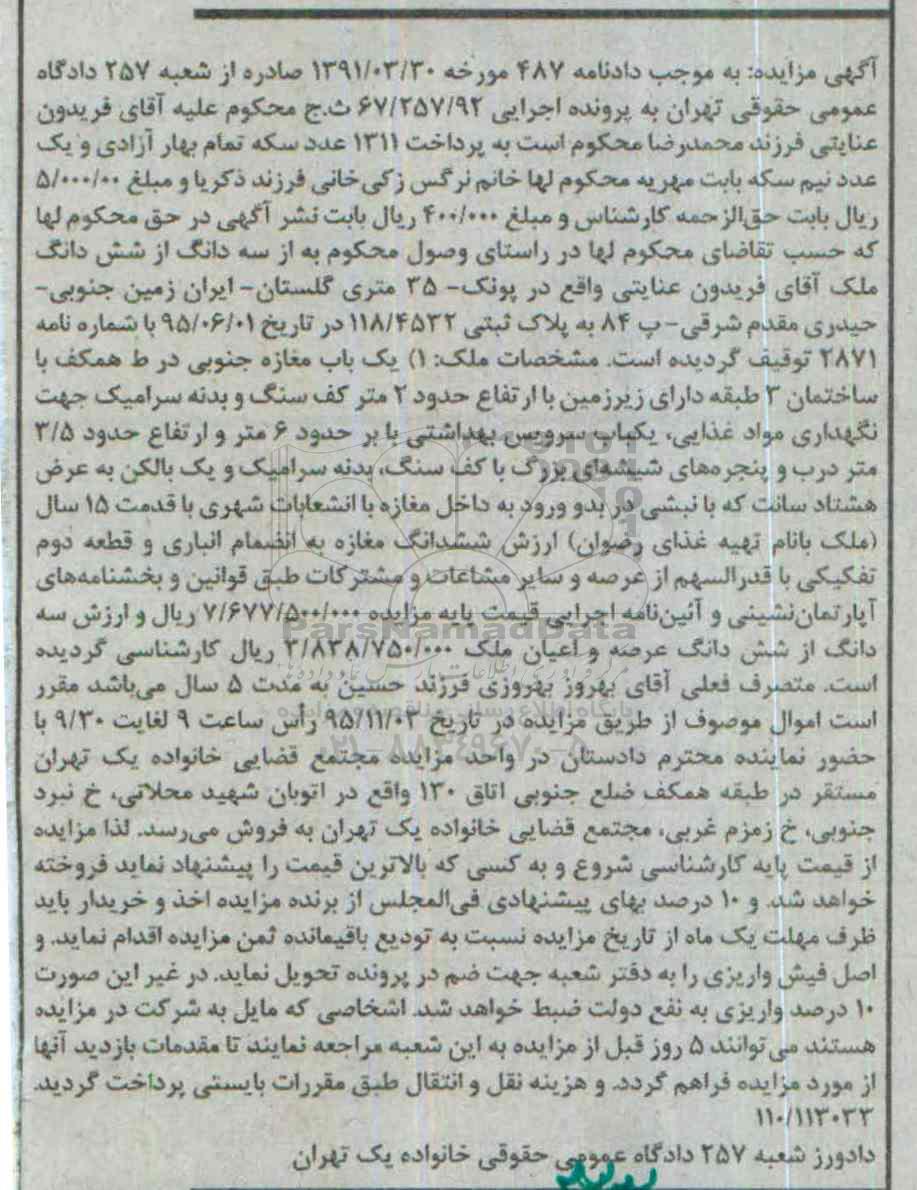 آگهی مزایده: به موجب دادنامه ۴۸۷ مورخه ۱۳۹۱/۰۳/۳۰ صادره از شعبه ۲۵۷ دادگاه
عمومی حقوقی تهران به پرونده اجرایی ۶۷/۲۵۷/۹۲ ث.ج محکوم علیه آقای فریدون
عنایتی فرزند محمدرضا محکوم است به پرداخت ۱۳۱۱ عدد سکه تمام بهار آزادی و یک
عدد نیم سکه بابت مهریه محکوم لها خانم نرگس زکی‌خانی فرزند ذکریا و مبلغ ۵/۰۰۰/۰۰
ریال بابت حق‌الزحمه کارشناس و مبلغ ۴۰۰/۰۰۰ ریال بابت نشر آگهی در حق محکوم لها
که حسب تقاضای محکوم لها در راستای وصول محکوم به از سه دانگ از شش دانگ
ملک آقای فریدون عنایتی واقع در پونک- ۳۵ متری گلستان- ایران زمین جنوبی-
حیدری مقدم شرقی- پ ۸۴ به پلاک ثبتی ۱۱۸/۴۵۳۲ در تاریخ ۹۵/۰۶/۰۱ با شماره نامه
۲۸۷۱ توقیف گردیده است. مشخصات ملک: ۱) یک باب مغازه جنوبی در ط همکف با
ساختمان ۳ طبقه دارای زیرزمین با ارتفاع حدود ۲ متر کف سنگ و بدنه سرامیک جهت
نگهداری مواد غذایی، یکباب سرویس بهداشتی با بر حدود ۶ متر و ارتفاع حدود ۳/۵
متر درب و پنجره‌های شیشه‌ای بزرگ با کف سنگ، بدنه سرامیک و یک بالکن به عرض
هشتاد سانت که با نبشی در بدو ورود به داخل مغازه با انشعابات شهری با قدمت ۱۵ سال
(ملک بانام تهیه غذای رضوان) ارزش ششدانگ مغازه به انضمام انباری و قطعه دوم
تفکیکی با قدرالسهم از عرصه و سایر مشاعات و مشترکات طبق قوانین و بخشنامه‌های
آپارتمان‌نشینی و آئین‌نامه اجرایی قیمت پایه مزایده ۷/۶۷۷/۵۰۰/۰۰۰ ریال و ارزش سه
دانگ از شش دانگ عرصه و اعیان ملک ۳/۸۳۸/۷۵۰/۰۰۰ ریال کارشناسی گردیده
است. متصرف فعلی آقای بهروز بهروزی فرزند حسین به مدت ۵ سال می‌باشد مقرر
است اموال موصوف از طریق مزایده در تاریخ ۹۵/۱۱/۰۳ رأس ساعت ۹ لغایت ۹/۳۰ با
حضور نماینده محترم دادستان در واحد مزایده مجتمع قضایی خانواده یک تهران
مستقر در طبقه همکف ضلع جنوبی اتاق ۱۳۰ واقع در اتوبان شهید محلاتی، خ نبرد
جنوبی، خ زمزم غربی، مجتمع قضایی خانواده یک تهران به فروش می‌رسد. لذا مزایده
از قیمت پایه کارشناسی شروع و به کسی که بالاترین قیمت را پیشنهاد نماید فروخته
خواهد شد. و ۱۰ درصد بهای پیشنهادی فی‌المجلس از برنده مزایده اخذ و خریدار باید
ظرف مهلت یک ماه از تاریخ مزایده نسبت به تودیع باقیمانده ثمن مزایده اقدام نماید. و
اصل فیش واریزی را به دفتر شعبه جهت ضم در پرونده تحویل نماید. در غیر این صورت
۱۰ درصد واریزی به نفع دولت ضبط خواهد شد. اشخاصی که مایل به شرکت در مزایده
هستند می‌توانند ۵ روز قبل از مزایده به این شعبه مراجعه نمایند تا مقدمات بازدید آنها
از مورد مزایده فراهم گردد. و هزینه نقل و انتقال طبق مقررات بایستی پرداخت گردید.
۱۱۰/۱۱۳۰۳۳
دادورز شعبه ۲۵۷ دادگاه عمومی حقوقی خانواده یک تهران
ParsNamadData